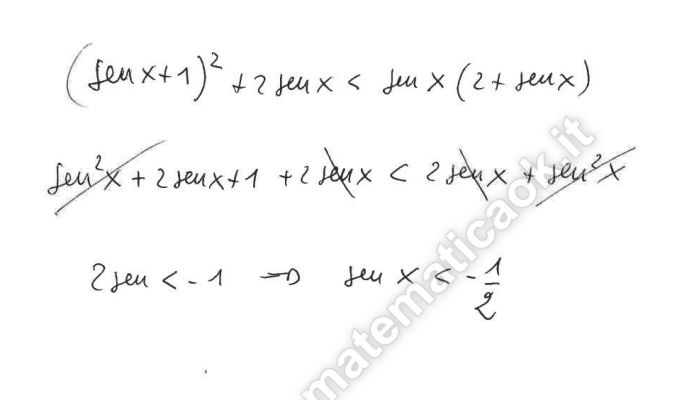 (sen x+1)² + 2 sen x < sen x (2 + sen x)
sen²x + 2 sen x + 1 + 2 sen x < 2 sen x + sen²x
2 sen < -1 → sen x < - 1/2
matematicaok.it